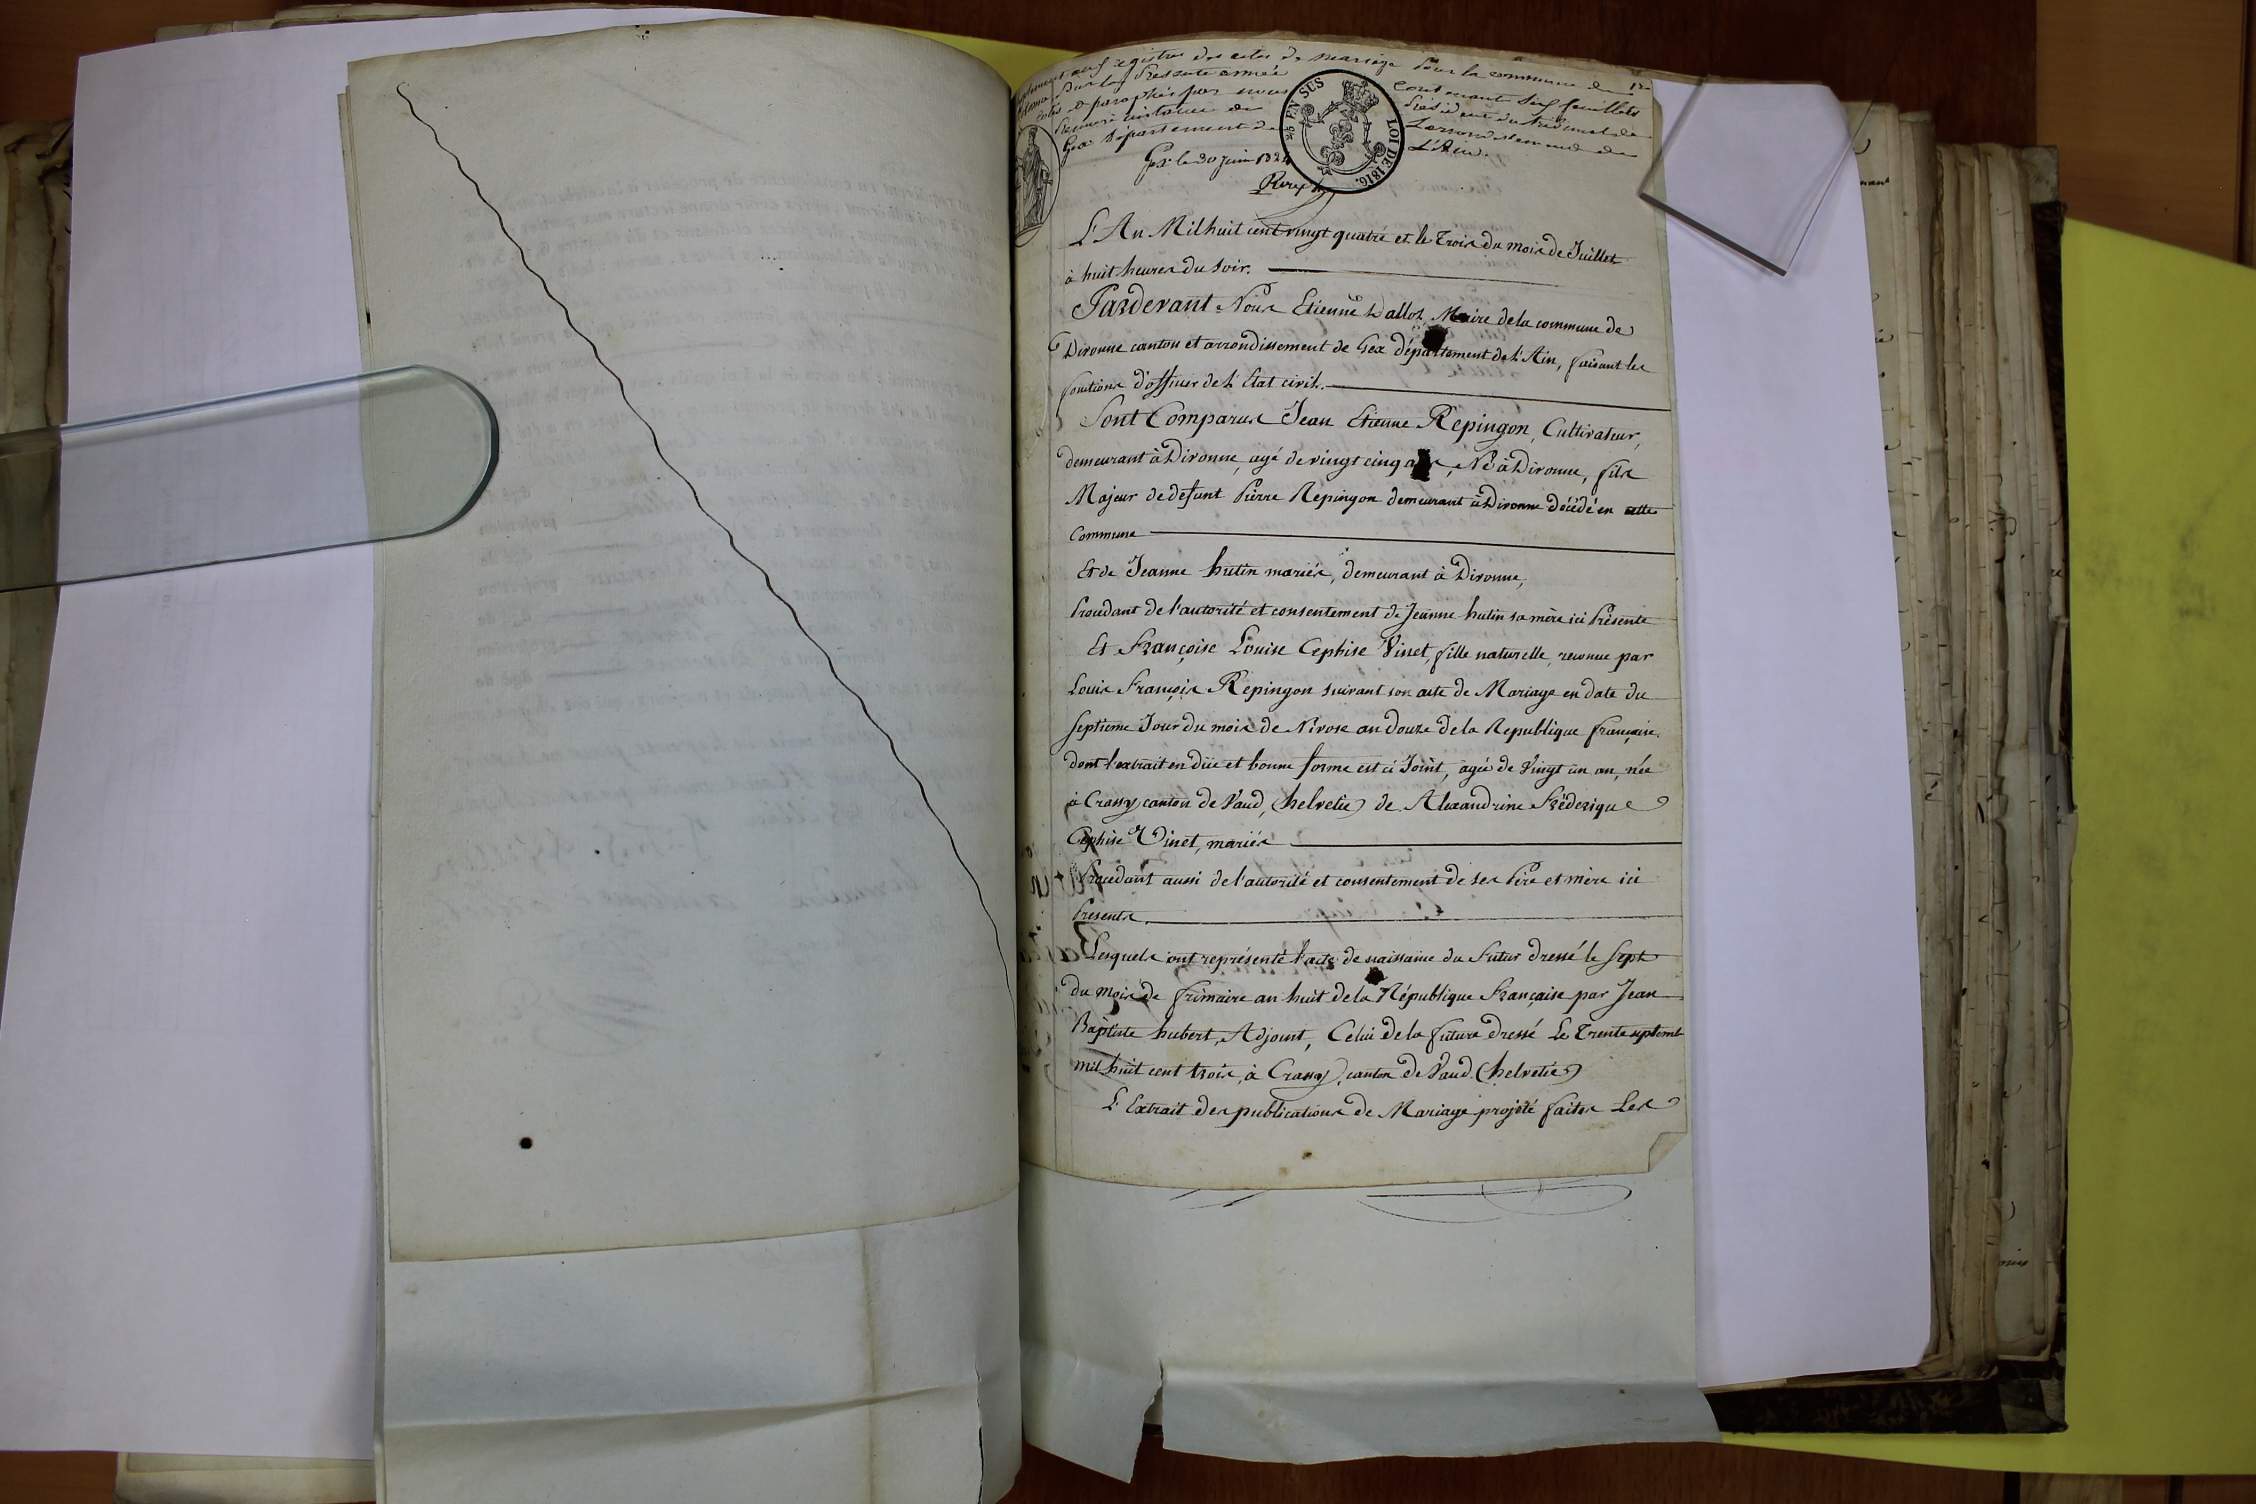 registre des actes de mariage pour la commune de
Présente année contenant six feuillets
cotés et paraphés par nous Président du tribunal de
Première instance de Larrondissement de
Gex Département de L'Ain.
Gex le 30 Juin 1824
25 EN SUS
LOI DE 1816.
L'An Mil huit cent vingt quatre et le Trois du mois de Juillet
à huit heures du soir.
Pardevant Nous Etienne Maire de la commune de
Divonne canton et arrondissement de Gex département de l'Ain, faisant les
fonctions d'officier de l'Etat civil.
Sont Comparus Jean Etienne Repingon, Cultivateur,
demeurant à Divonne, agé de vingt cinq ans, Né à Divonne, fils
Majeur de defunt Pierre Repingon demeurant à Divonne décédé en cette
Commune
Et de Jeanne hutin mariés, demeurant à Divonne,
Procedant de l'autorité et consentement de Jeanne hutin sa mère ici Présente
Et Françoise Louise Cephise Vinet, fille naturelle, reconue par
Louis François Repingon suivant son acte de Mariage en date du
septieme Jour du mois de Nivose an douze de la Republique française.
dont l'extrait en düe et bonne forme est ci Joint, agée de Vingt un an, née
à Crassy canton de Vaud, (helvetie) de Alexandrine Frëderique
Cephise Vinet, mariés
Procedant aussi de l'autorité et consentement de ses Père et mère ici
Presents.
Lesquels ont représenté l'acte de naissance du Futur dressé le sept
du mois de frimaire an huit de la République Française par Jean
Baptiste hubert, Adjoint, Celui de la future dressé Le Trente septemb
mil huit cent trois, à Crassy, canton de Vaud. (helvetie)
L'Extrait des publications de Mariage projeté faites Les